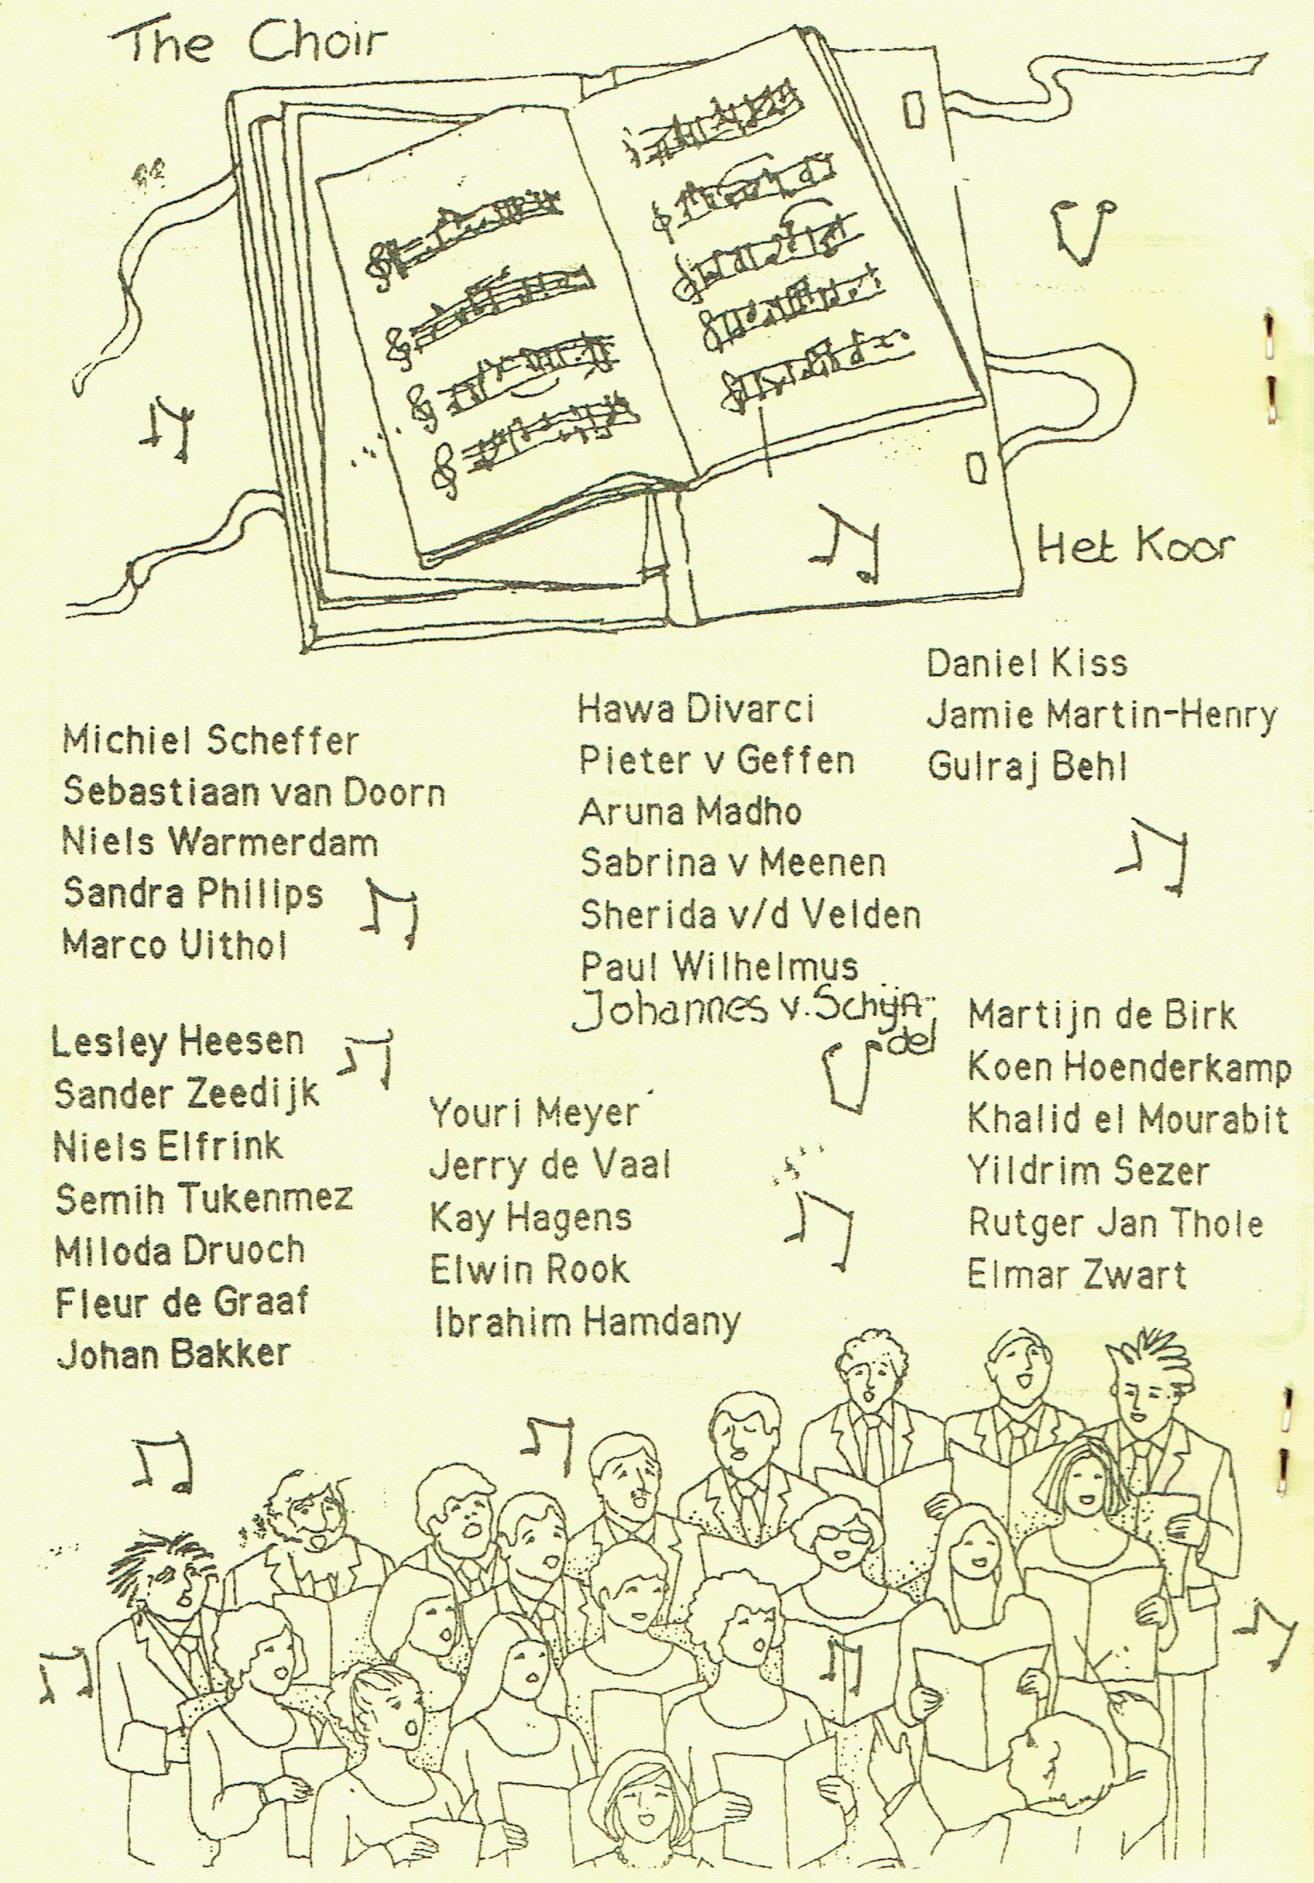 The Choir
Het Koor
Michiel Scheffer
Sebastiaan van Doorn
Niels Warmerdam
Sandra Philips
Marco Uithol
Hawa Divarci
Pieter v Geffen
Aruna Madho
Sabrina v Meenen
Sherida v/d Velden
Paul Wilhelmus
Johannes v. Schijn-
del
Daniel Kiss
Jamie Martin-Henry
Gulraj Behl
Lesley Heesen
Sander Zeedijk
Niels Elfrink
Semih Tukenmez
Miloda Druoch
Fleur de Graaf
Johan Bakker
Youri Meyer
Jerry de Vaal
Kay Hagens
Elwin Rook
Ibrahim Hamdany
Martijn de Birk
Koen Hoenderkamp
Khalid el Mourabit
Yildrim Sezer
Rutger Jan Thole
Elmar Zwart